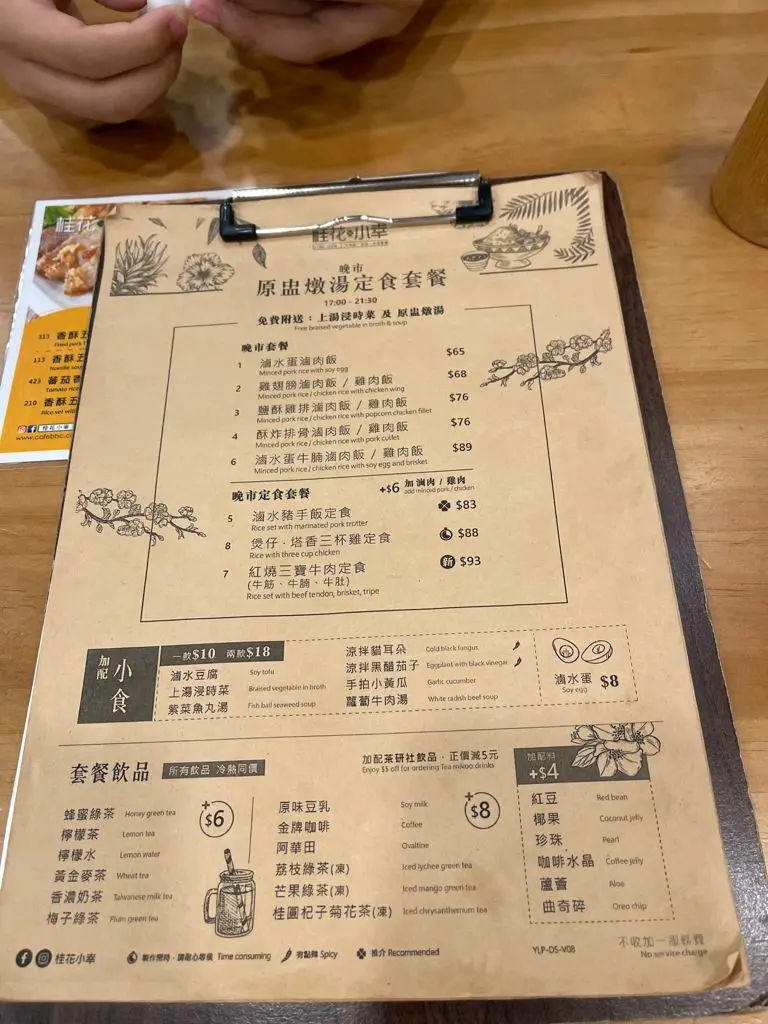 桂花
313 香酥五
Fried pork
113 香酥五
Noodle soup
423 蕃茄香
Tomato rice
210 香酥五
Rice set with
桂花小幸
www.cafebbc.c
桂花 小幸
晚市
原盅燉湯定食套餐
17:00 - 21:30
免費附送：上湯浸時菜 及 原盅燉湯
Free braised vegetable in broth & soup
晚市套餐
1 滷水蛋滷肉飯 $65
Minced pork rice with soy egg
2 雞翅膀滷肉飯 / 雞肉飯 $68
Minced pork rice / chicken rice with chicken wing
3 鹽酥雞排滷肉飯 / 雞肉飯 $76
Minced pork rice / chicken rice with popcorn chicken fillet
4 酥炸排骨滷肉飯 / 雞肉飯 $76
Minced pork rice / chicken rice with pork cutlet
6 滷水蛋牛腩滷肉飯 / 雞肉飯 $89
Minced pork rice / chicken rice with soy egg and brisket
晚市定食套餐 +$6 加滷肉 / 雞肉
add minced pork / chicken
5 滷水豬手飯定食 $83
Rice set with marinated pork trotter
8 煲仔 · 塔香三杯雞定食 $88
Rice with three cup chicken
7 紅燒三寶牛肉定食 新 $93
(牛筋、牛腩、牛肚)
Rice set with beef tendon, brisket, tripe
加配 小食
一款$10 兩款$18
滷水豆腐 Soy tofu
上湯浸時菜 Braised vegetable in broth
紫菜魚丸湯 Fish ball seaweed soup
涼拌貓耳朵 Cold black fungus
涼拌黑醋茄子 Eggplant with black vinegar
手拍小黃瓜 Garlic cucumber
蘿蔔牛肉湯 White radish beef soup
滷水蛋 $8
Soy egg
套餐飲品 所有飲品 冷熱同價
加配茶研社飲品，正價減5元
Enjoy $5 off for ordering Tea mikoo drinks
+$6
蜂蜜綠茶 Honey green tea
檸檬茶 Lemon tea
檸檬水 Lemon water
黃金麥茶 Wheat tea
香濃奶茶 Taiwanese milk tea
梅子綠茶 Plum green tea
+$8
原味豆乳 Soy milk
金牌咖啡 Coffee
阿華田 Ovaltine
荔枝綠茶(凍) Iced lychee green tea
芒果綠茶(凍) Iced mango green tea
桂圓杞子菊花茶(凍) Iced chrysanthemum tea
加配料
+$4
紅豆 Red bean
椰果 Coconut jelly
珍珠 Pearl
咖啡水晶 Coffee jelly
蘆薈 Aloe
曲奇碎 Oreo chip
桂花小幸 製作需時，請耐心等候 Time consuming 有點辣 Spicy 推介 Recommended
YLP-DS-V08
不收加一服務費
No service charge